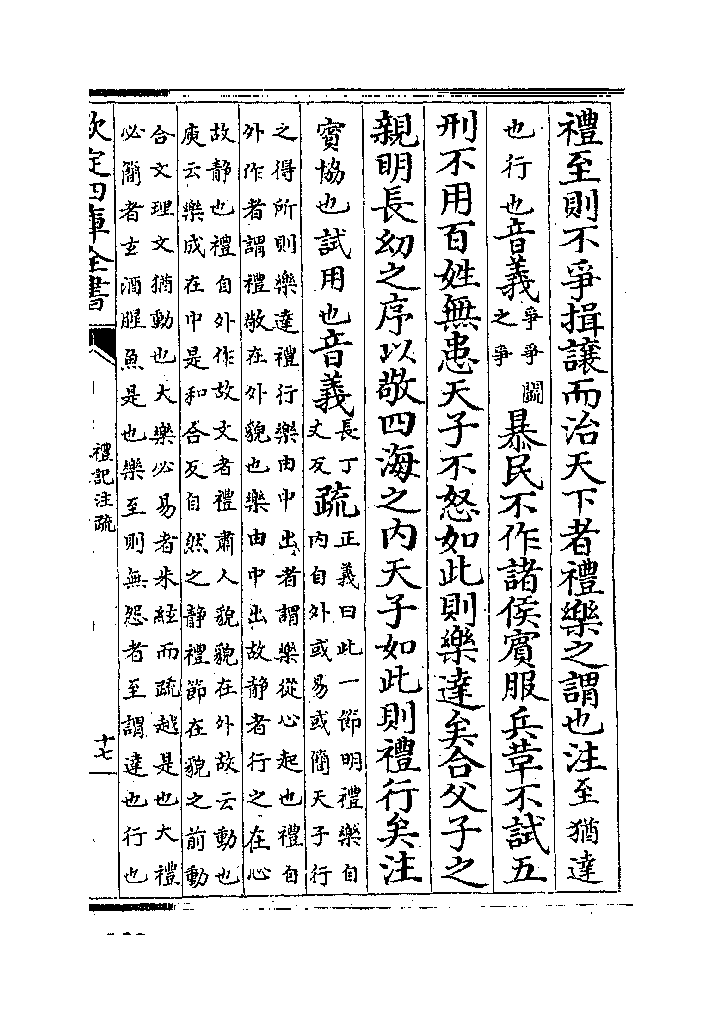 禮至則不爭揖讓而治天下者禮樂之謂也注至猶達
也行也音義爭爭
之爭
鬭
暴民不作諸侯賓服兵革不試五
刑不用百姓無患天子不怒如此則樂達矣合父子之
親明長幼之序以敬四海之內天子如此則禮行矣注
賓協也試用也音義長丁
丈反
疏正義曰此一節明禮樂自
內自外或易或簡天子行
之得所則樂達禮行樂由中出者謂樂從心起也禮自
外作者謂禮敬在外貌也樂由中出故靜者行之在心
故靜也禮自外作故文者禮肅人貌貌在外故云動也
庾云樂成在中是和合反自然之靜禮節在貌之前動
合文理文猶動也大樂必易者朱絃而疏越是也大禮
必簡者玄酒腥魚是也樂至則無怨者至謂達也行也
欽定四庫全書
禮記注疏
十七